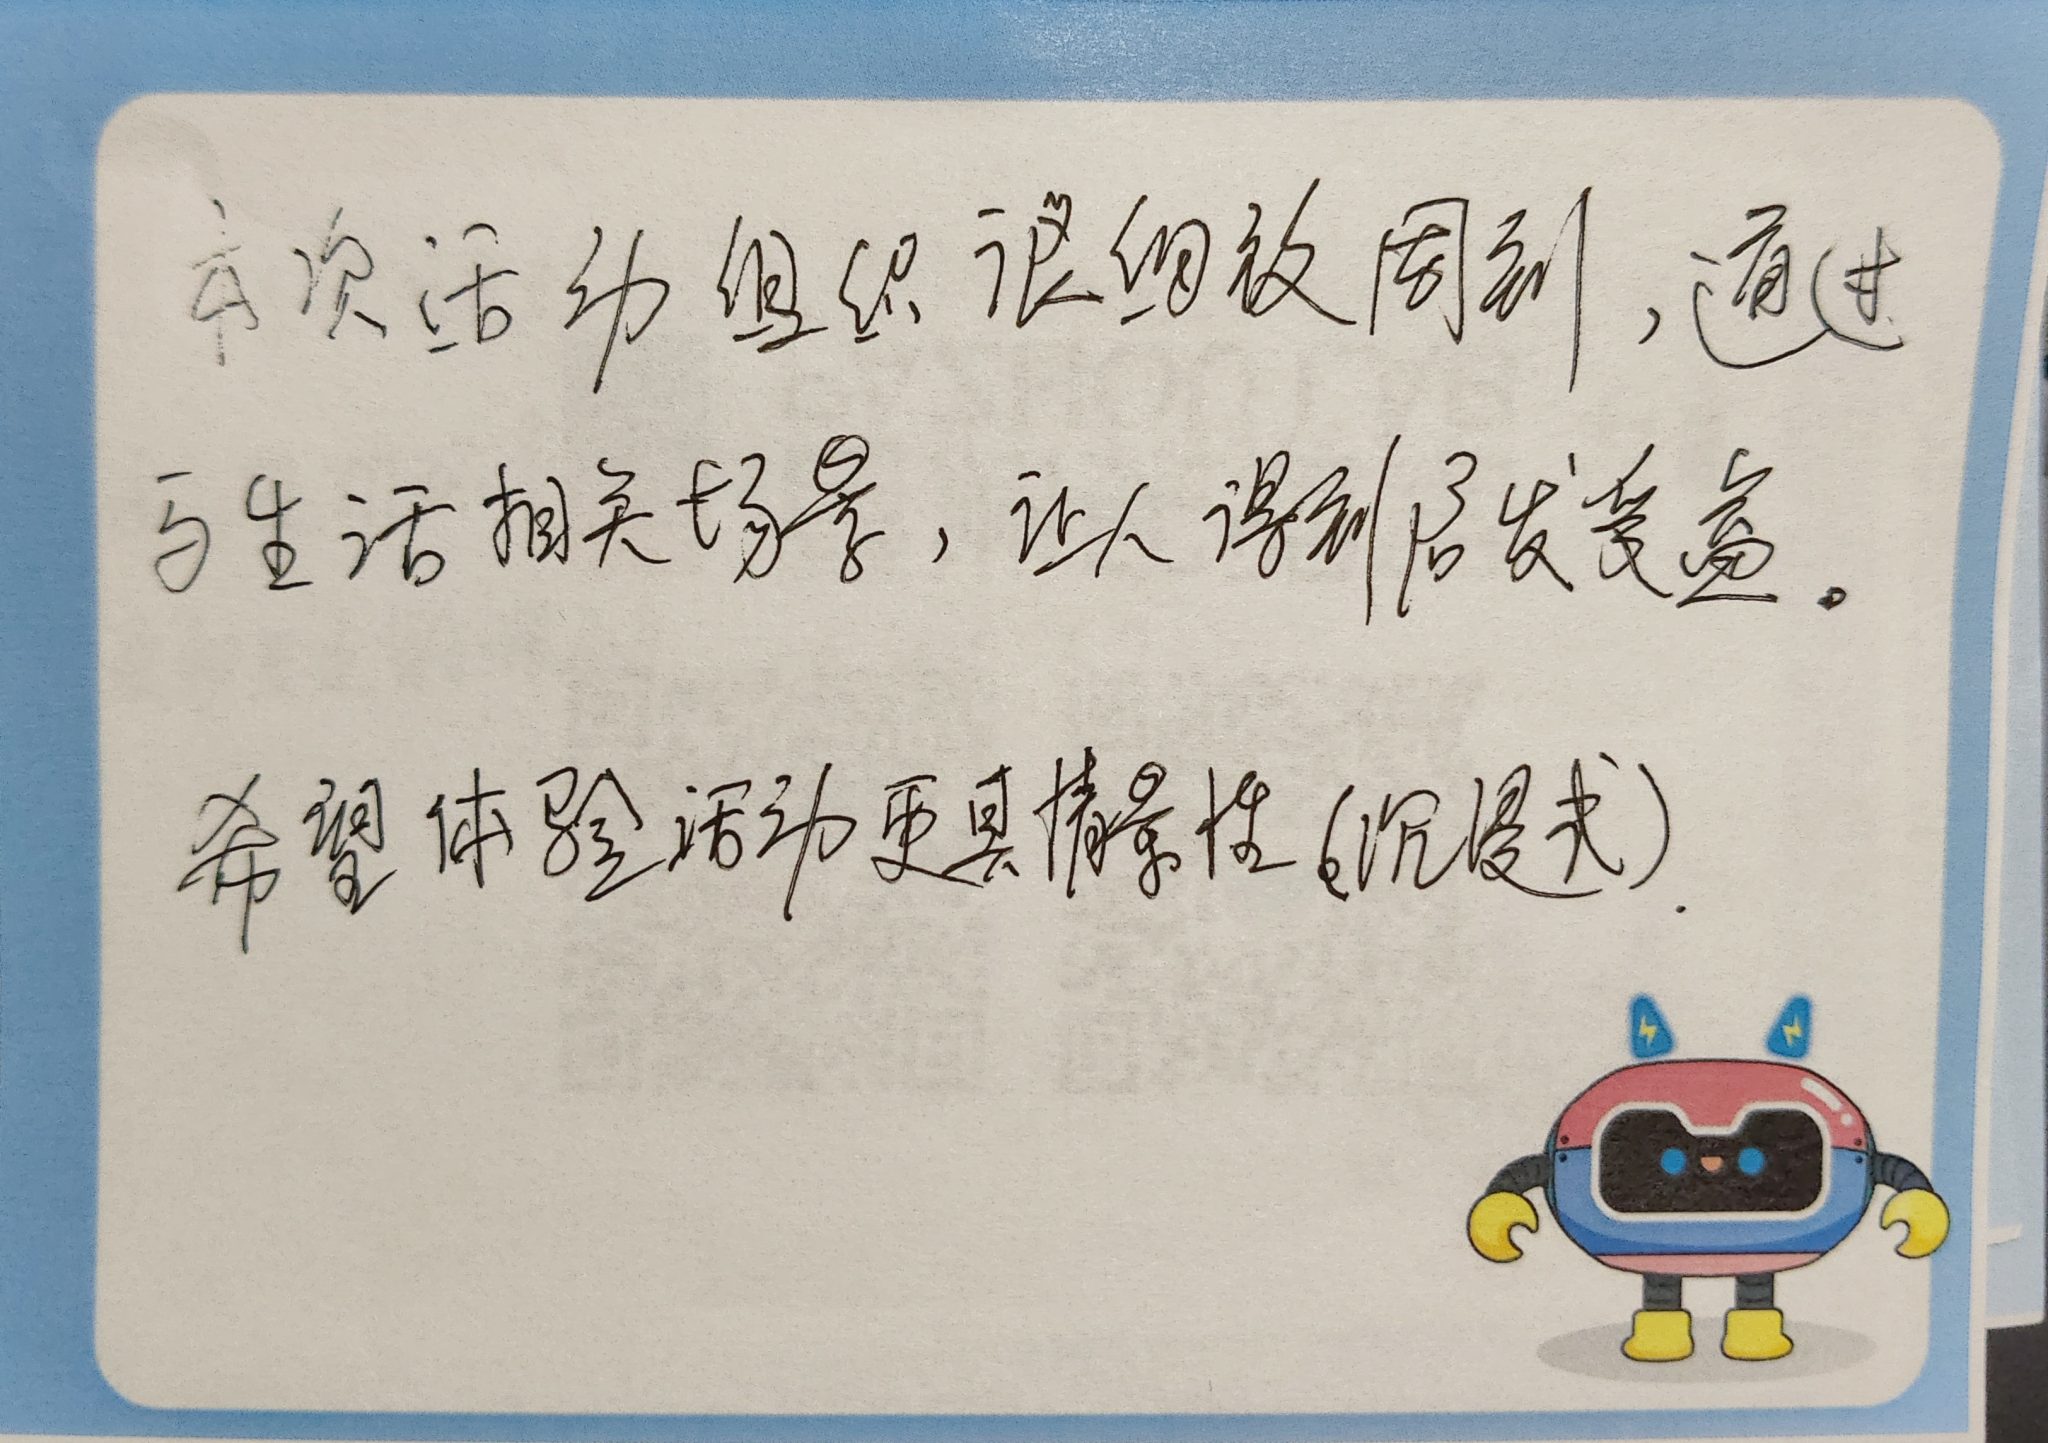 本次活动组织很细致周到，通过
与生活相关场景，让人得到启发受益。
希望体验活动更具情景性（沉浸式）.